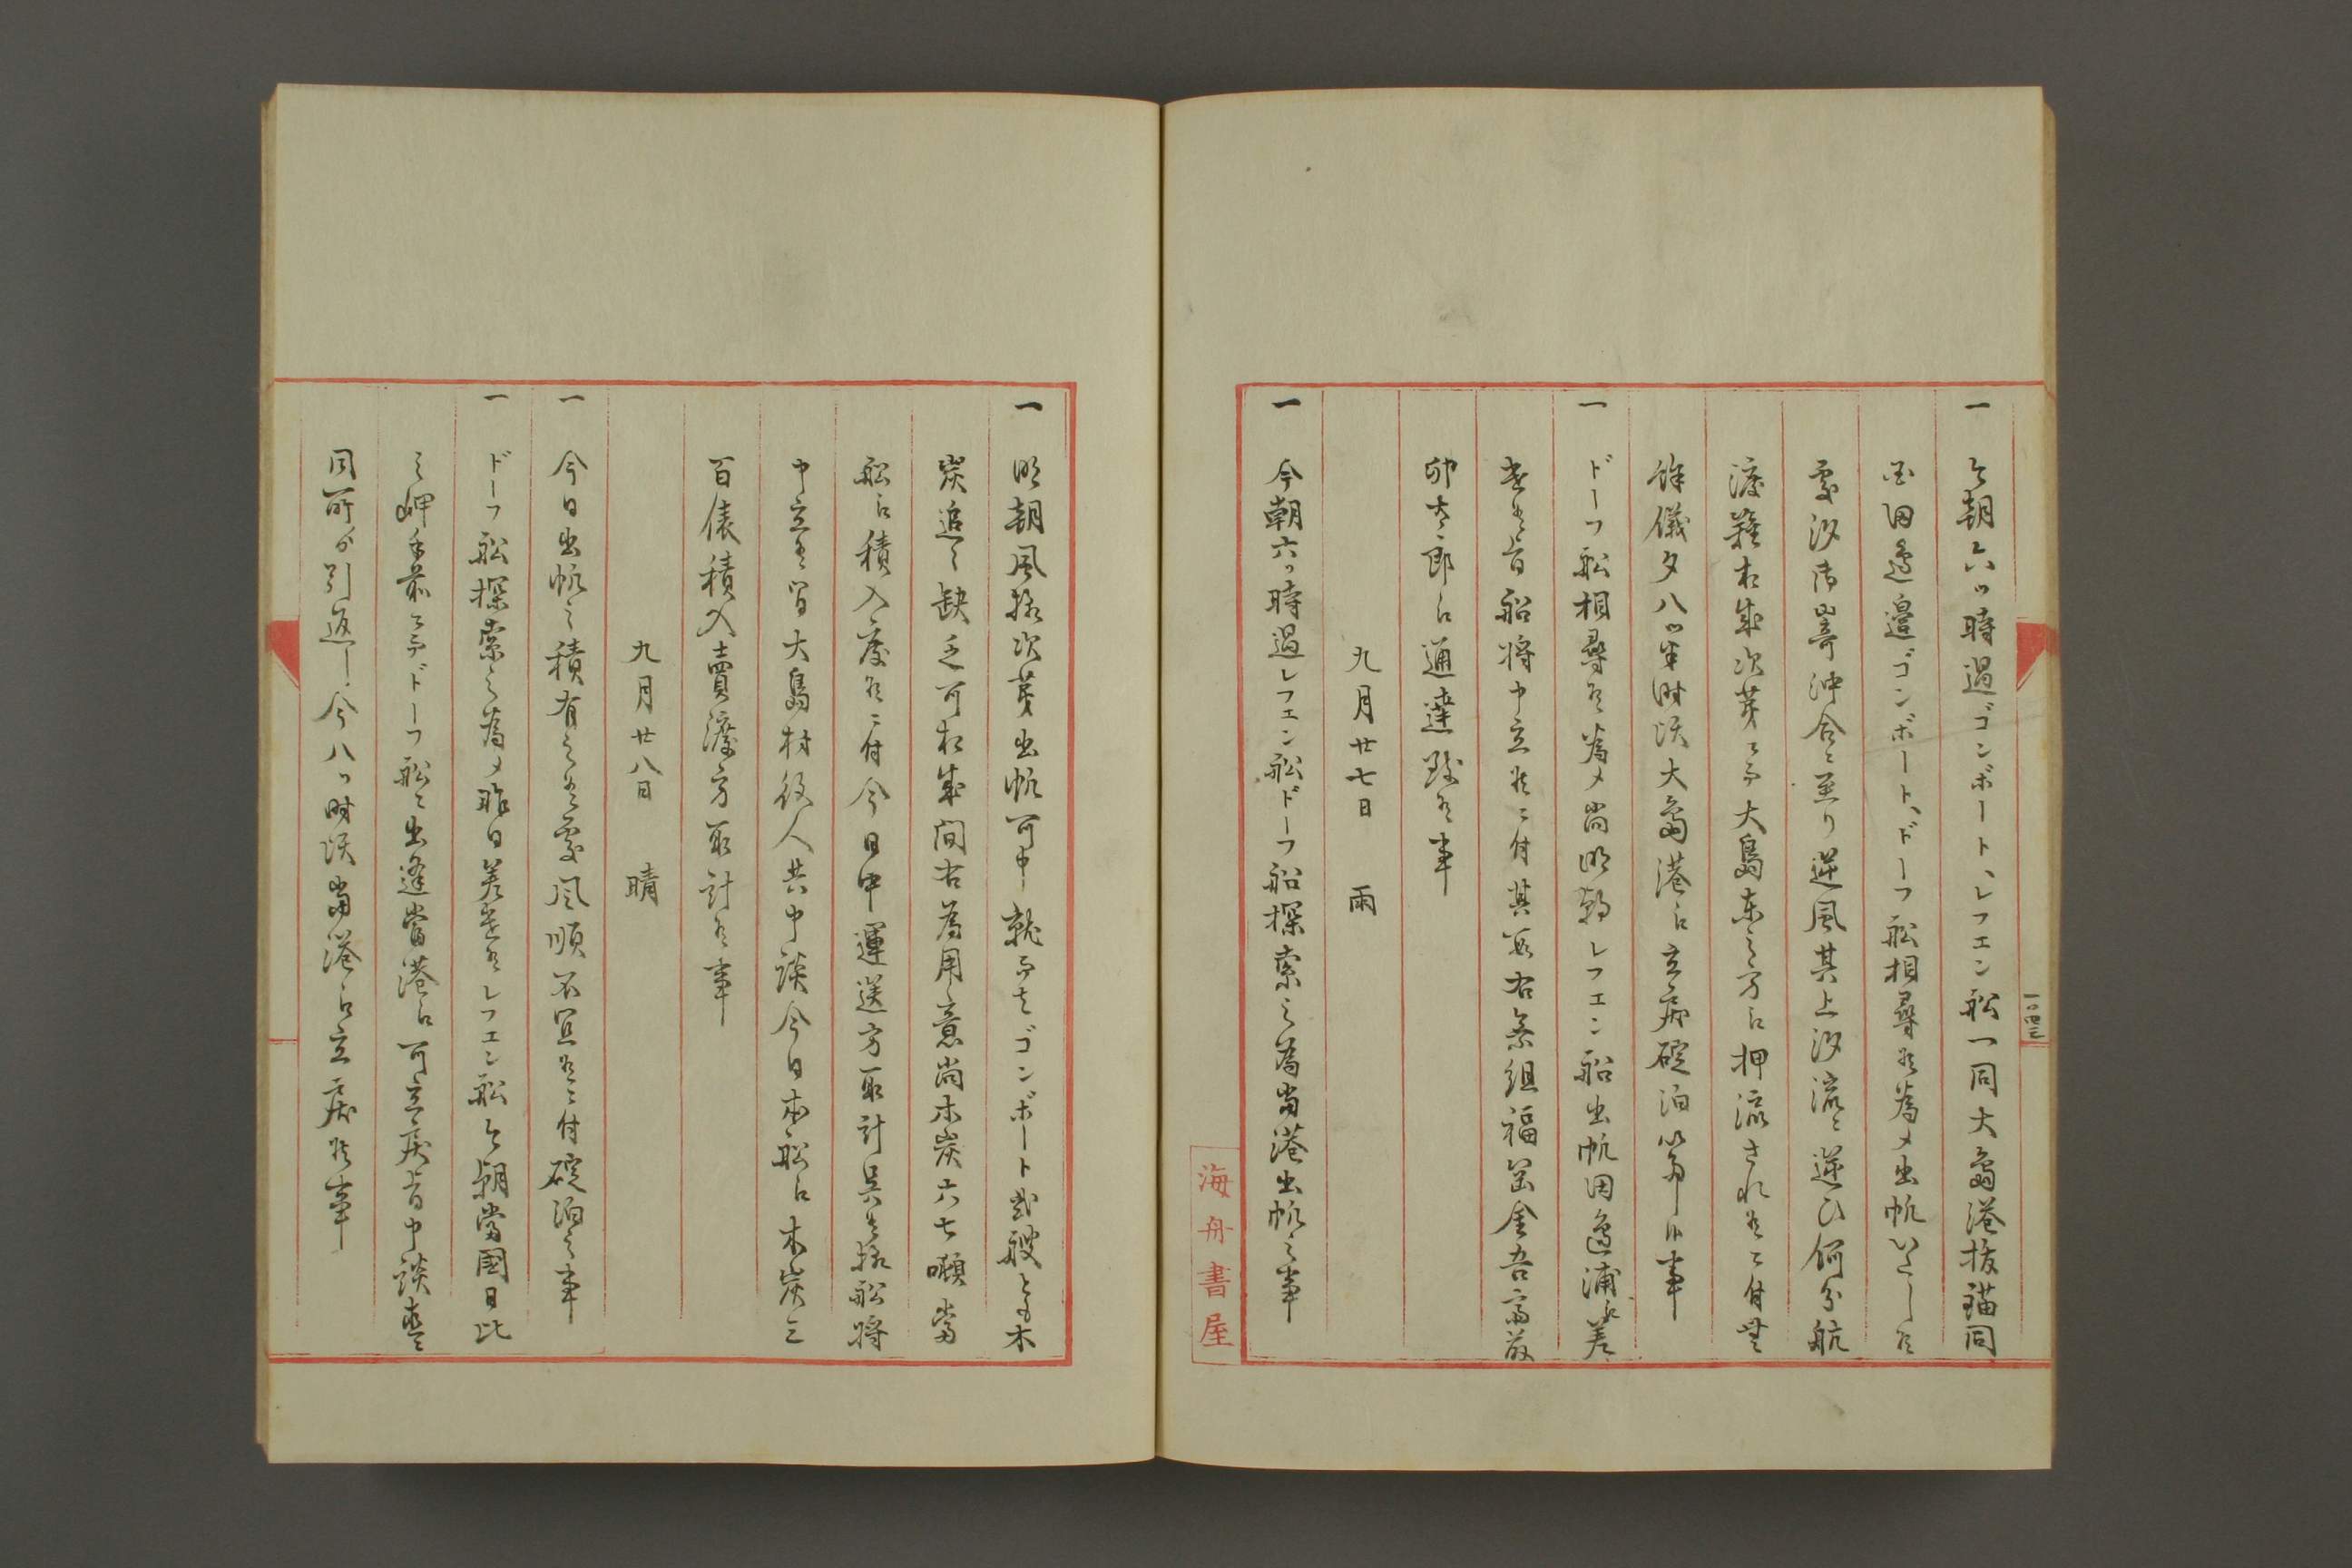 一 今朝六ツ時過ゴンボート、レフェン船一同大島港抜錨同
所田邊邉ゴンボート、ドーフ船相尋候為メ出帆いたし候
處汐御崎沖合ニ至り逆風其上汐流ニ逆ひ何分航
渡難相成次第ニ而大島東之方江押流され候ニ付無
餘儀夕八ツ半時頃大島港江立戻碇泊
一 ドーフ船相尋候為メ尚明朝レフェン船出帆田邊浦江差
遣候旨船将申立候ニ付其段右乗組福岡金吾齋藤
卯太郎江通達致候事
九月廿七日 雨
一 今朝六ツ時過レフェン船ドーフ船探索之為當港出帆之事
海舟書屋
一 明朝風様次第出帆可申就而者ゴンボート弐艘とも木
炭追々缺乏可相成間右為用意尚木炭六七噸當
船江積入度候ニ付今日中運送方取計呉候様船将
申立候間大島村役人共申談今日本船江木炭三
百俵積入賣渡方取計候事
九月廿八日 晴
一 今日出帆之積有之候處風順不宜候ニ付碇泊之事
一 ドーフ船探索之為メ昨日差遣候レフェン船今朝當國日比
之岬手前ニ而ドーフ船ニ出逢當港江可立戻旨申談直ニ
同所ゟ引返し今八ツ時頃當港江立戻候事